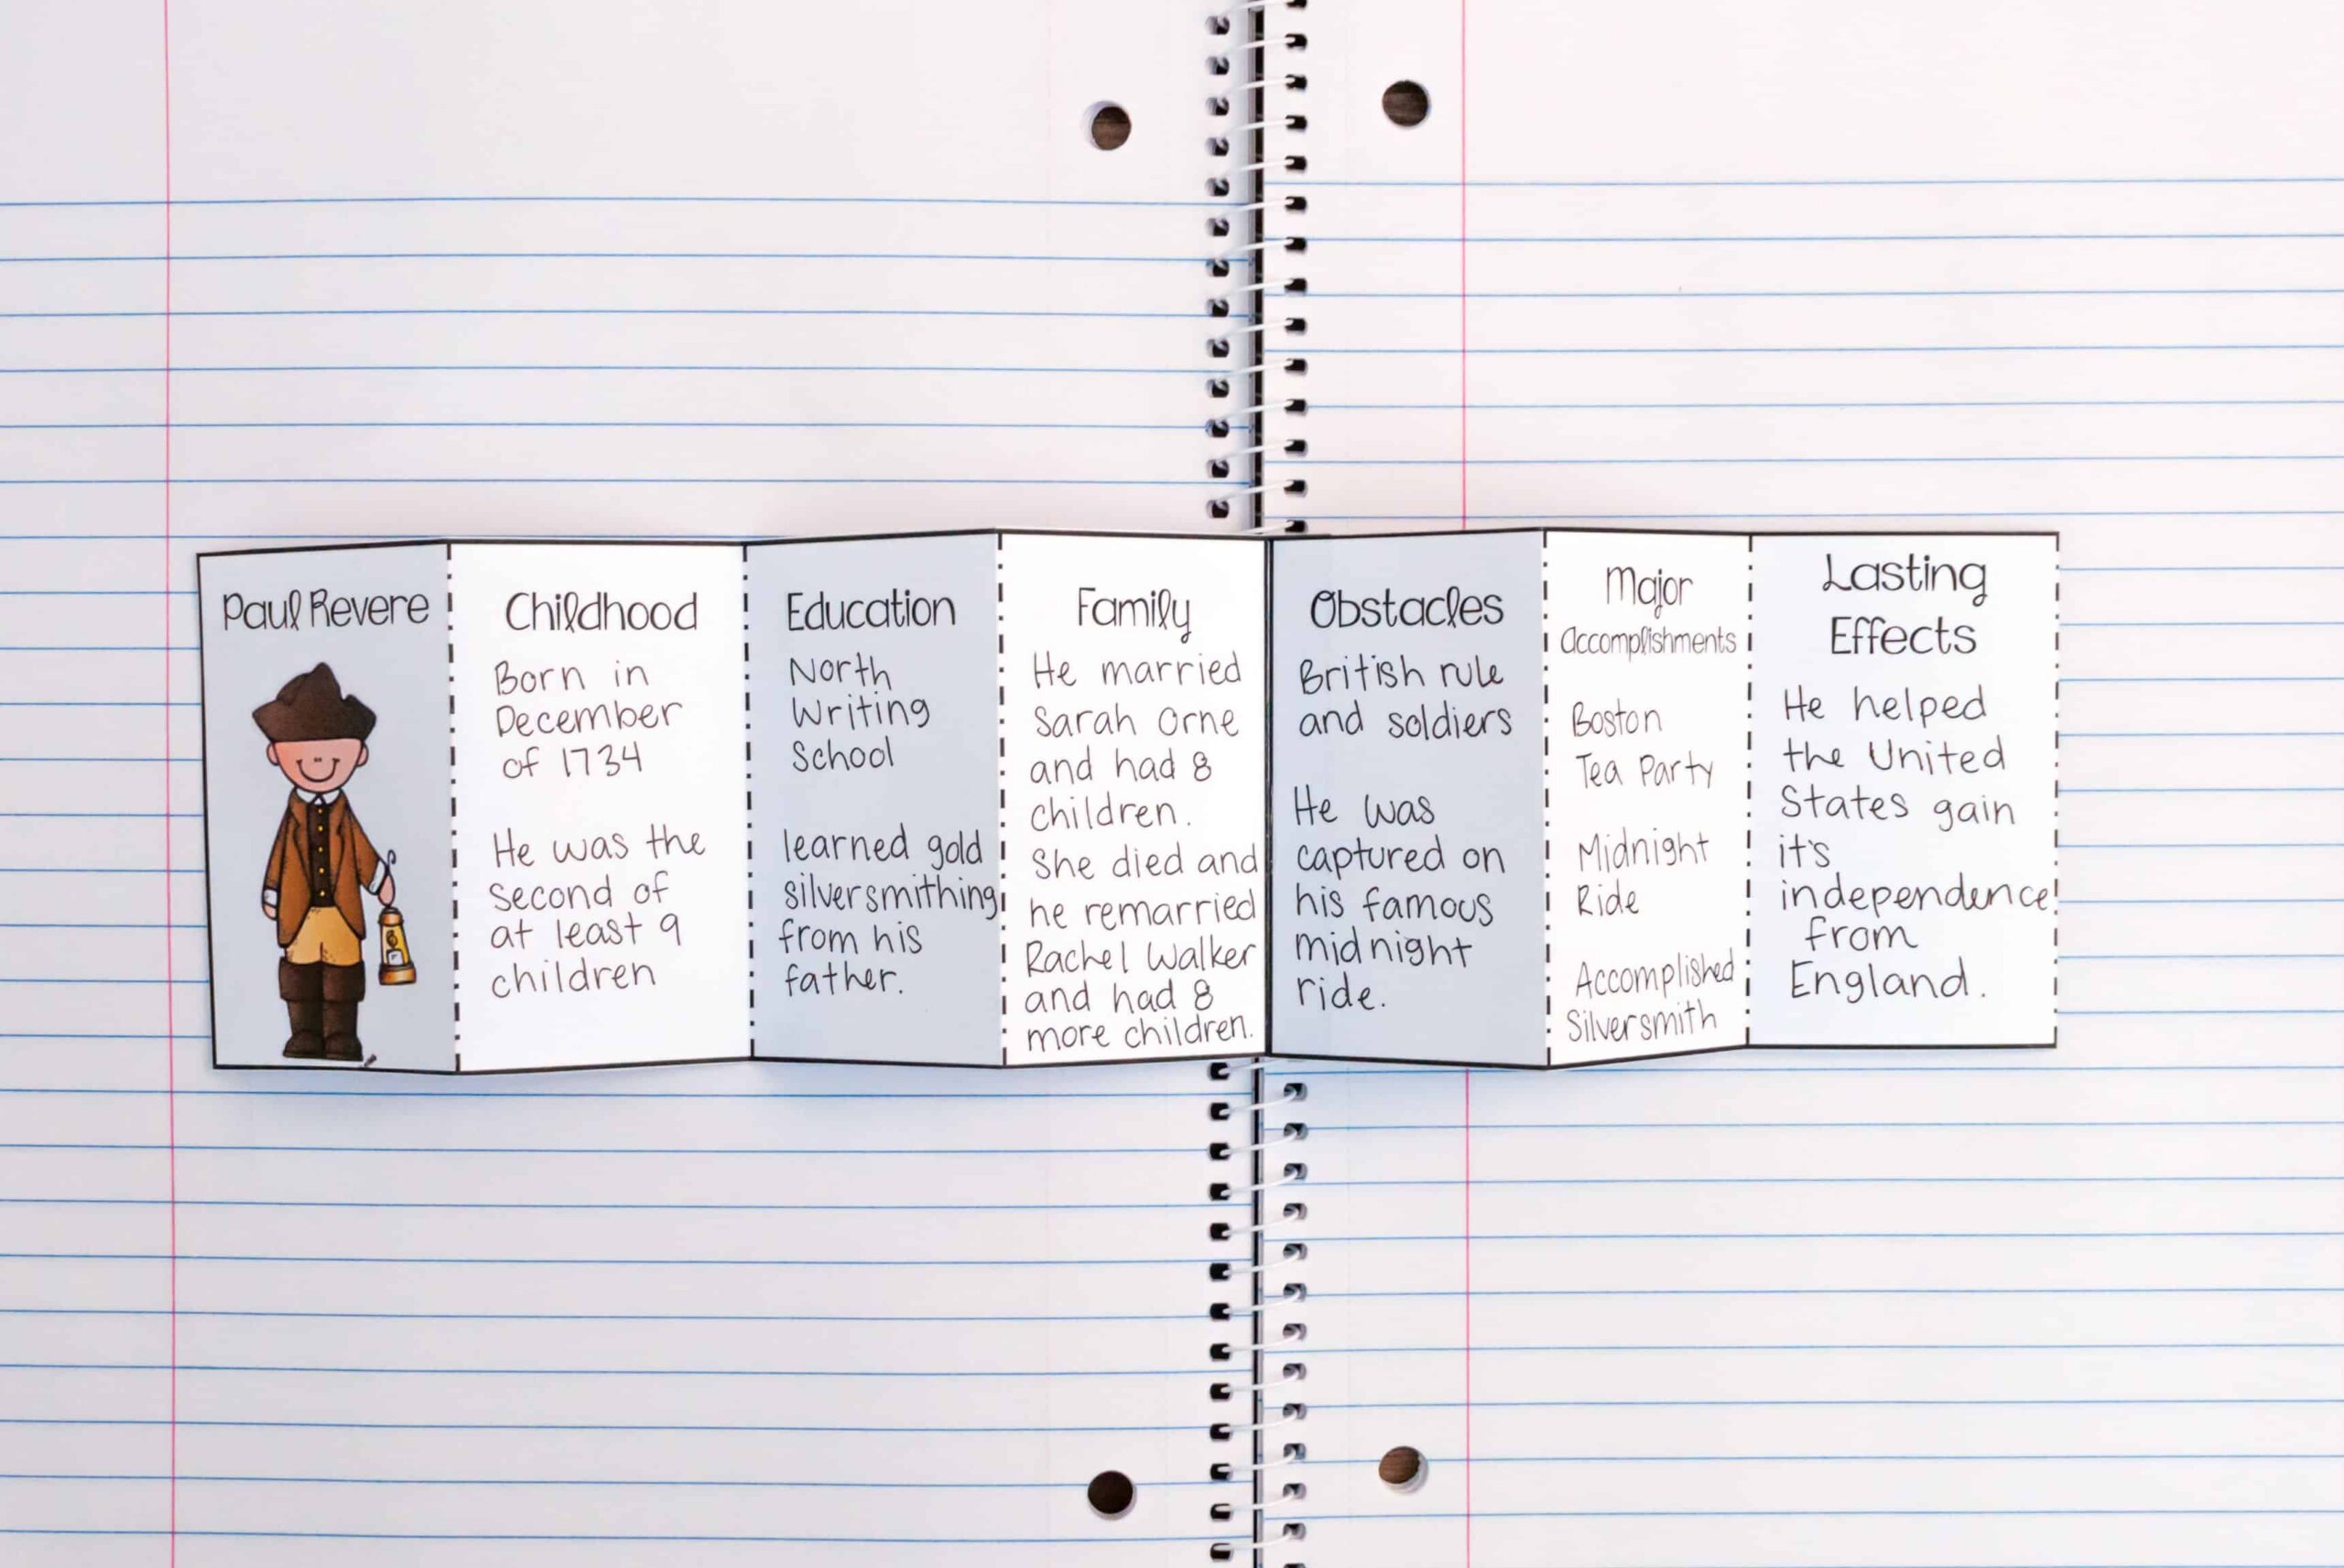 Paul Revere
Childhood
Born in
December
of 1734
He was the
second of
at least 9
children
Education
North
Writing
School
learned gold
silversmithing
from his
father.
Family
He married
Sarah Orne
and had 8
children.
She died and
he remarried
Rachel Walker
and had 8
more children.
Obstacles
British rule
and soldiers
He was
captured on
his famous
midnight
ride.
Major
Accomplishments
Boston
Tea Party
Midnight
Ride
Accomplished
Silversmith
Lasting
Effects
He helped
the United
States gain
it's
independence
from
England.